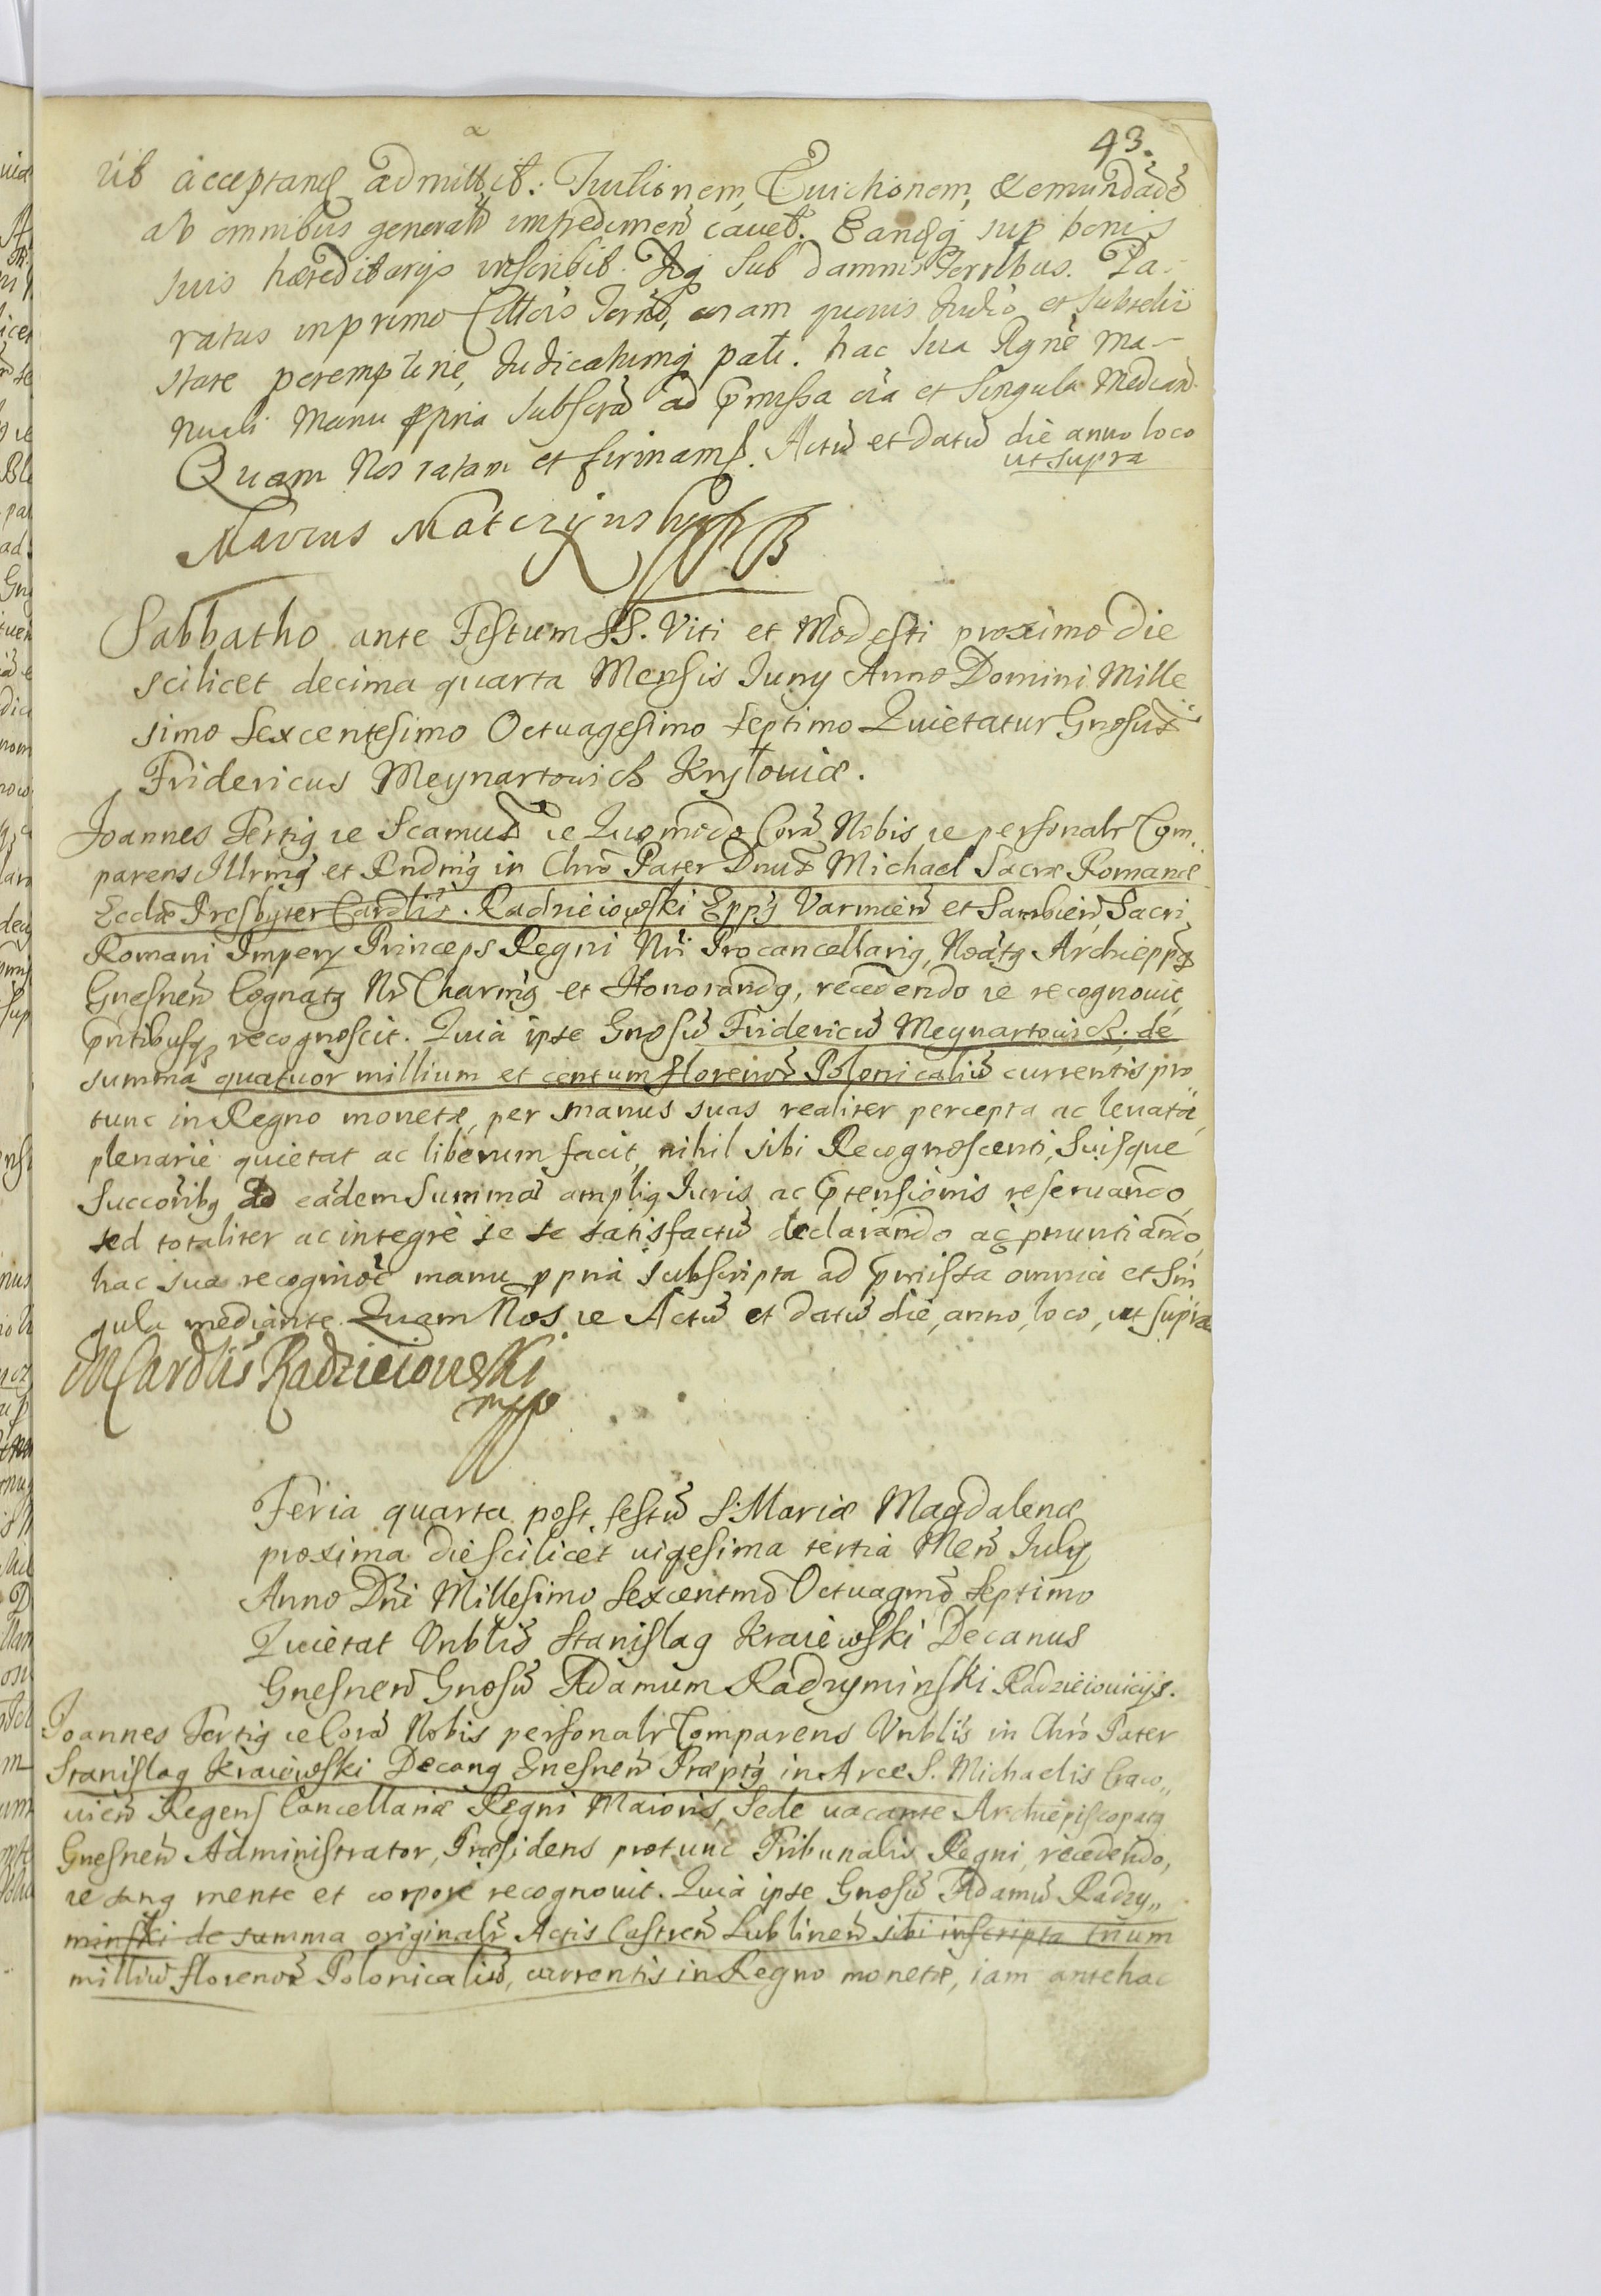 43.
ut acceptand admittit. Tuitionem, Euictionem, & emundãdõ
ab omnibus generalr impedimen cauet. Eandq sup bonis
suis hæreditarijs inscribit. Idq sub damnis Terribus. Pa-
ratus in primo Cittõis Termõ, coram quouis Judio et Subselii
stare peremptorie, Judicatumq pati. hac sua Rgne ma-
nuali Manu ppria Subscra ad pmissa oia et Singula Median.
Quam Nos ratam et firmam. Actu et datu die anno loco
ut supra
Marcus Matczynsky
Sabbatho ante Festum SS. Viti et Modesti proximo die
scilicet decima quarta Mensis Juny Anno Domini Mille
simo Sexcentesimo Octuagesimo septimo Quietatur Gnosus
Fridericus Meynartowich Krylouiæ.
Joannes Tertiq &c Scamus &c Quomodo Corã Nobis &c personalr Com,
parens Illrmq et Rndmq in Chrõ Pater Dnus Michael Sacræ Romanæ
Ecclæ Presbyter Cardlis. Radzieiowski Eppq Varmien et Sambien, Sacri
Romani Impery Princeps Regni Nri Procancellariq, Noatq Archieppq
Gnesnen Cognatq Nr Charmq et Honorandq, recedendo &c recognouit,
pntibusq recognoscit. Quia ipse Gnosu Fridericu Meynartowich, de
summa quatuor millium et centum florenor Polonicaliu currentis pro
tunc in Regno monetæ, per manus suas realiter percepta ac leuata,
plenarie quietat ac liberum facit, nihil sibi Recognoscenti, Suisque
Succoribq ad eadem Summa ampliq Juris ac prensionis reseruando,
sed totaliter ac integre se se satisfactu declarando ac pnuntiando,
hac sua recognoe manu ppria subscripta ad pmissa omnia et Sin
gula mediante. Quam Nos &c Actu et datu die, anno, loco, ut supra
M Cardlis Radzieiowski
mpp
Feria quarta post festu S. Mariæ Magdalenæ
proxima die scilicet uigesima tertia Men July
Anno Dni Millesimo Sexcentmo Octuagmo Septimo
Quietat Vnblis Stanislaq Kraiewski Decanus
Gnesnen Gnosu Adamum Radzyminski Radzieiouicijs.
Joannes Tertiq &c Corã Nobis personalr Comparens Vnblis in Chrõ Pater
Stanislaq Kraiewski Decanq Gnesnen Præptq in Arce S. Michaelis Craco„
uien Regens Cancellariæ Regni Maioris, Sede uacante Archiepiscopatq
Gnesnen Administrator, Præsidens protunc Tribunalis Regni, recedendo,
&c sanq mente et corpore recognouit. Quia ipse Gnosu Adamu Radzy„
minski de summa originalr Actis Castren Lublinen sibi inscripta trium
milliu florenor Polonicaliu, currentis in Regno monetæ, iam antehac